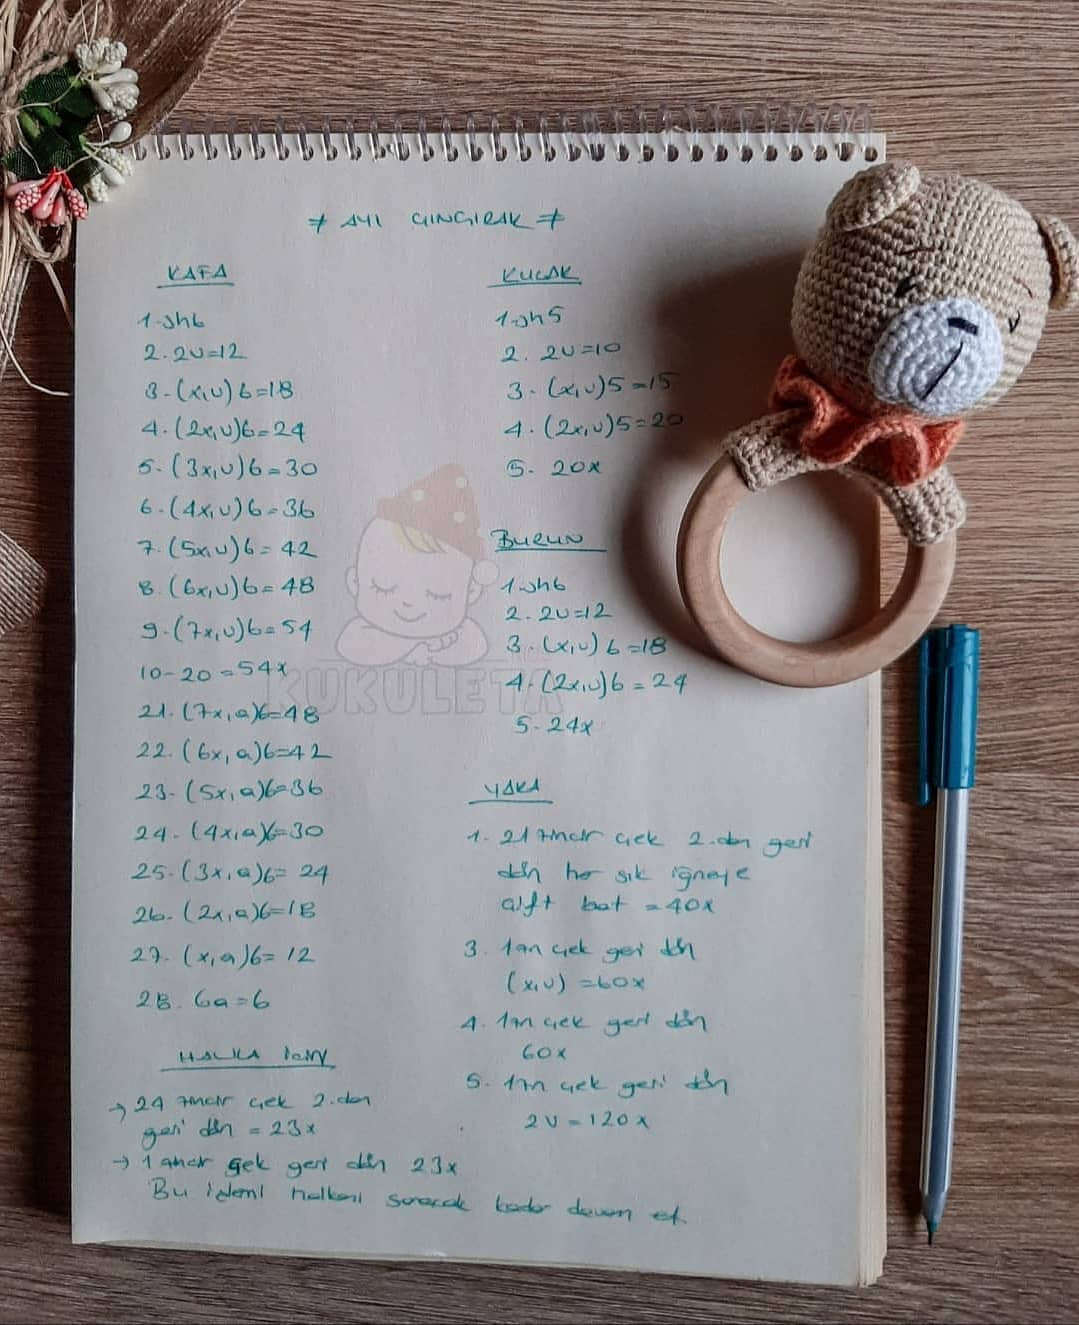 * AYI ÇINGIRAK *
KAFA
1-sh6
2. 2v=12
3-(x,v)6=18
4.(2x,v)6=24
5-(3x,v)6=30
6.(4x,v)6=36
7.(5x,v)6=42
8.(6x,v)6=48
9.(7x,v)6=54
10-20=54x
21.(7x,a)6=48
22.(6x,a)6=42
23-(5x,a)6=36
24-(4x,a)6=30
25.(3x,a)6=24
26.(2x,a)6=18
27-(x,a)6=12
28. 6a=6
HALKA İÇİN
→ 24 zincir çek 2.den
geri dön = 23x
→ 1 zincir çek geri dön 23x
Bu işlemi halkayı saracak kadar devam et.
KULAK
1-sh5
2. 2v=10
3-(x,v)5=15
4.(2x,v)5=20
5- 20x
BURUN
1-sh6
2. 2v=12
3-(x,v)6=18
4.(2x,v)6=24
5-24x
YAKA
1. 21 zincir çek 2.den geri
dön her sık iğneye
çift bat =40x
3. 1zn çek geri dön
(x,v) =60x
4. 1zn çek geri dön
60x
5. 1zn çek geri dön
2v=120x
KUKULETA